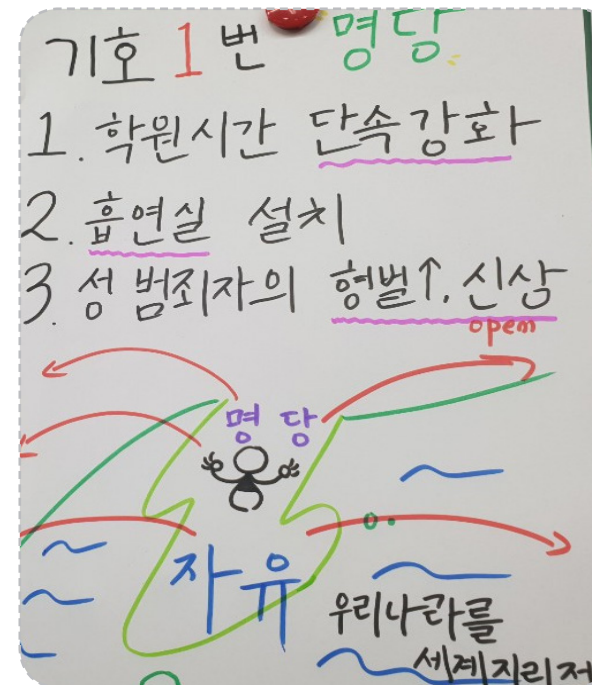 기호 1번 명당
1. 학원시간 단속강화
2. 흡연실 설치
3. 성범죄자의 형벌↑. 신상
opem
명당
자유
우리나라를
세계지리저